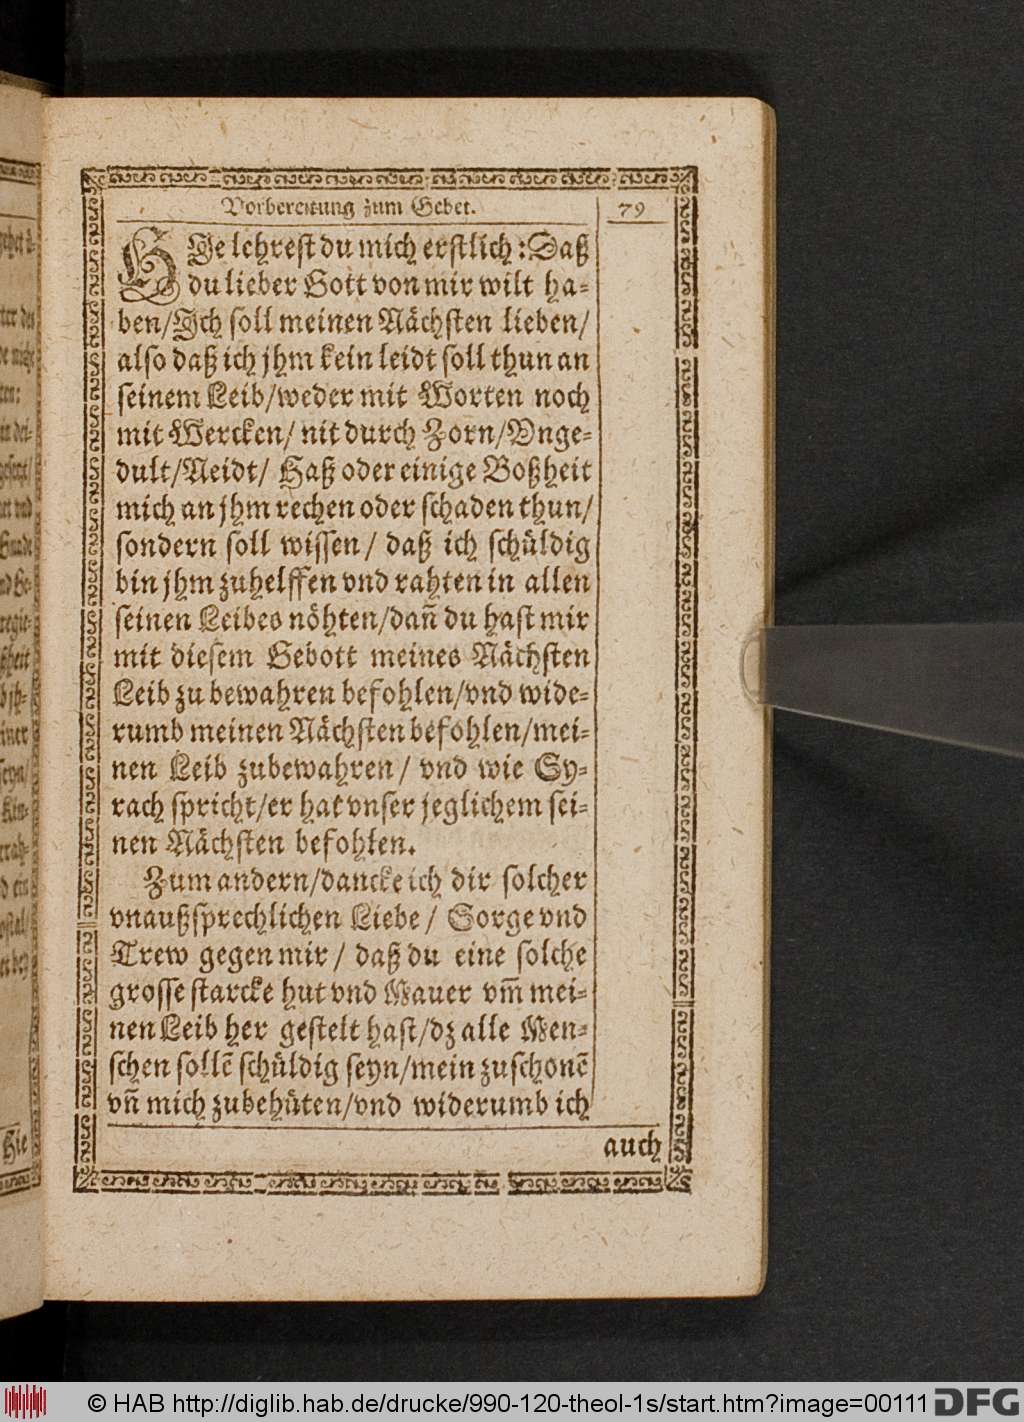 Vorbereitung zum Gebet. 79
HIe lehrest du mich erstlich: Daß
du lieber Gott von mir wilt ha-
ben/Ich soll meinen Nächsten lieben/
also daß ich jhm kein leidt soll thun an
seinem Leib/weder mit Worten noch
mit Wercken/ nit durch Zorn/Vnge-
dult/Neidt/ Haß oder einige Boßheit
mich an jhm rechen oder schaden thun/
sondern soll wissen/ daß ich schüldig
bin jhm zuhelffen vnd rahten in allen
seinen Leibes nöhten/dañ du hast mir
mit diesem Gebott meines Nächsten
Leib zu bewahren befohlen/vnd wide-
rumb meinen Nächsten befohlen/mei-
nen Leib zubewahren/ vnd wie Sy-
rach spricht/er hat vnser jeglichem sei-
nen Nächsten befohlen.
Zum andern/dancke ich dir solcher
vnaußsprechlichen Liebe/ Sorge vnd
Trew gegen mir/ daß du eine solche
grosse starcke hut vnd Mauer vm̃ mei-
nen Leib her gestelt hast/dz alle Men-
schen sollẽ schüldig seyn/mein zuschonẽ
vñ mich zubehüten/vnd widerumb ich
auch
Hie
© HAB http://diglib.hab.de/drucke/990-120-theol-1s/start.htm?image=00111
DFG